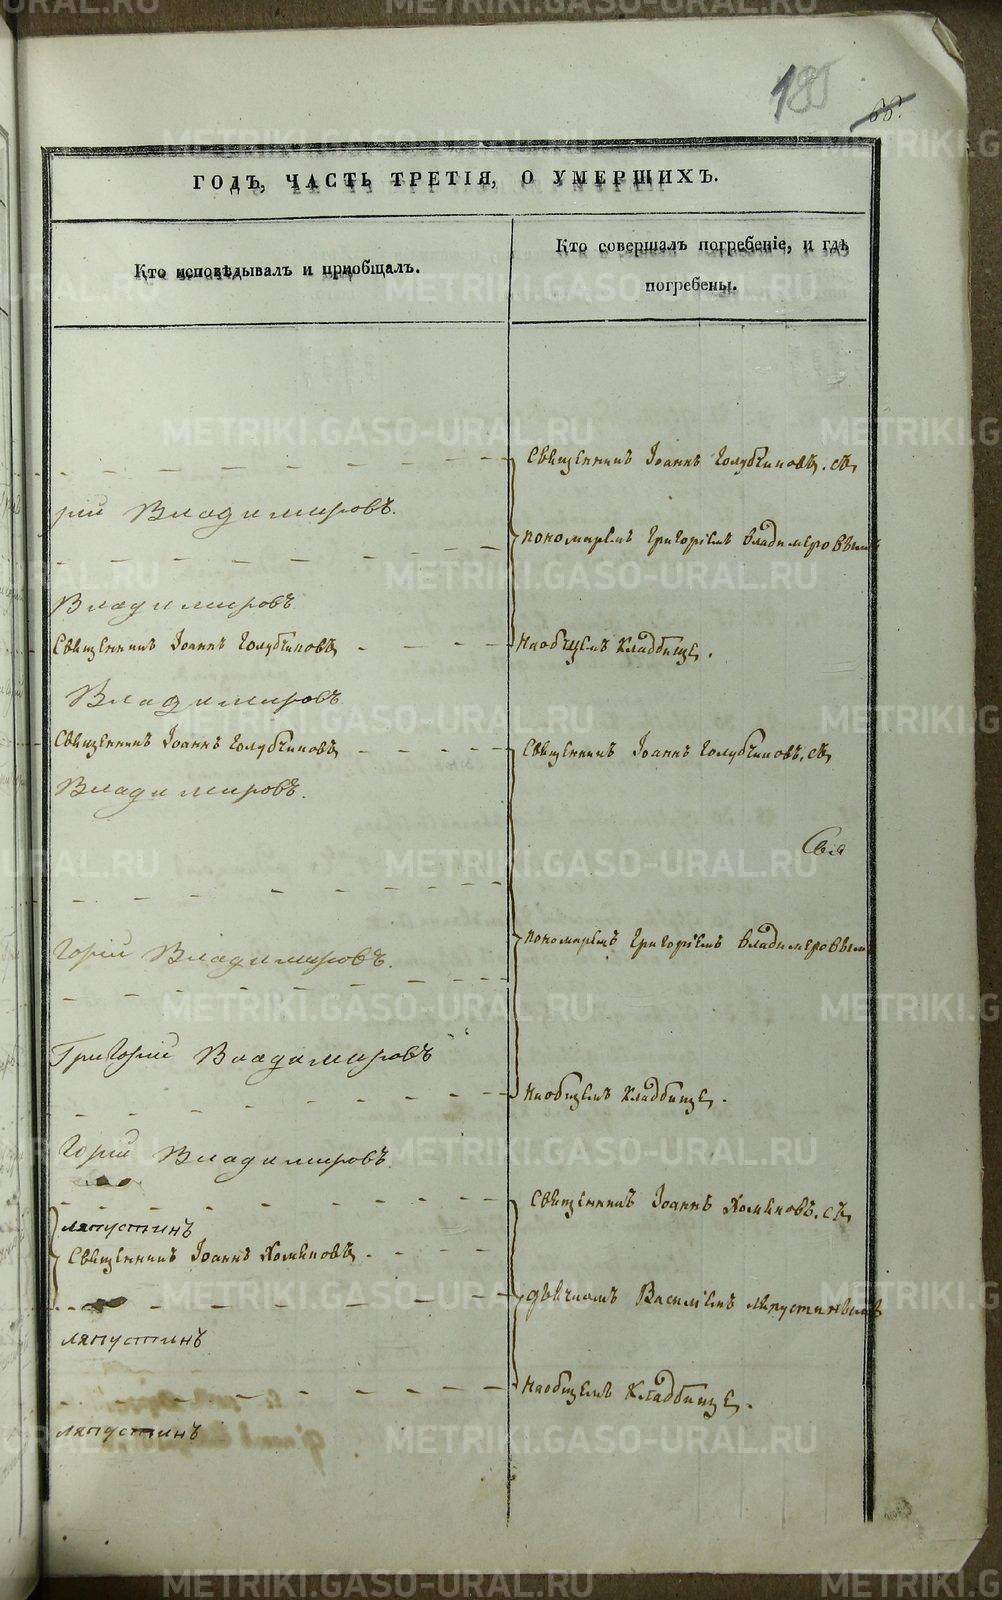 185
66.
ГОДЪ, ЧАСТЬ ТРЕТІЯ, О УМЕРШИХЪ.
Кто исповѣдывалъ и пріобщалъ.
Кто совершалъ погребеніе, и гдѣ
погребены.
Священникъ Іоаннъ Голубчиковъ, съ
рій Владимировъ.
пономаремъ Григоріемъ Владимеровымъ
Владимировъ
Священникъ Іоаннъ Голубчиковъ
на общемъ кладбище.
Владимировъ
Священникъ Іоаннъ Голубчиковъ
Священникъ Іоаннъ Голубчиковъ, съ
Владимировъ.
горій Владимировъ.
пономаремъ Григоріемъ Владимеровымъ
Григорій Владимировъ
на общемъ кладбище.
горій Владимировъ.
Священникъ Іоаннъ Хомяковъ, съ
Ляпустинъ
Священникъ Іоаннъ Хомяковъ
дьячкомъ Василіемъ Ляпустинымъ
Ляпустинъ
на общемъ кладбище.
Ляпустинъ
METRIKI.GASO-URAL.RU